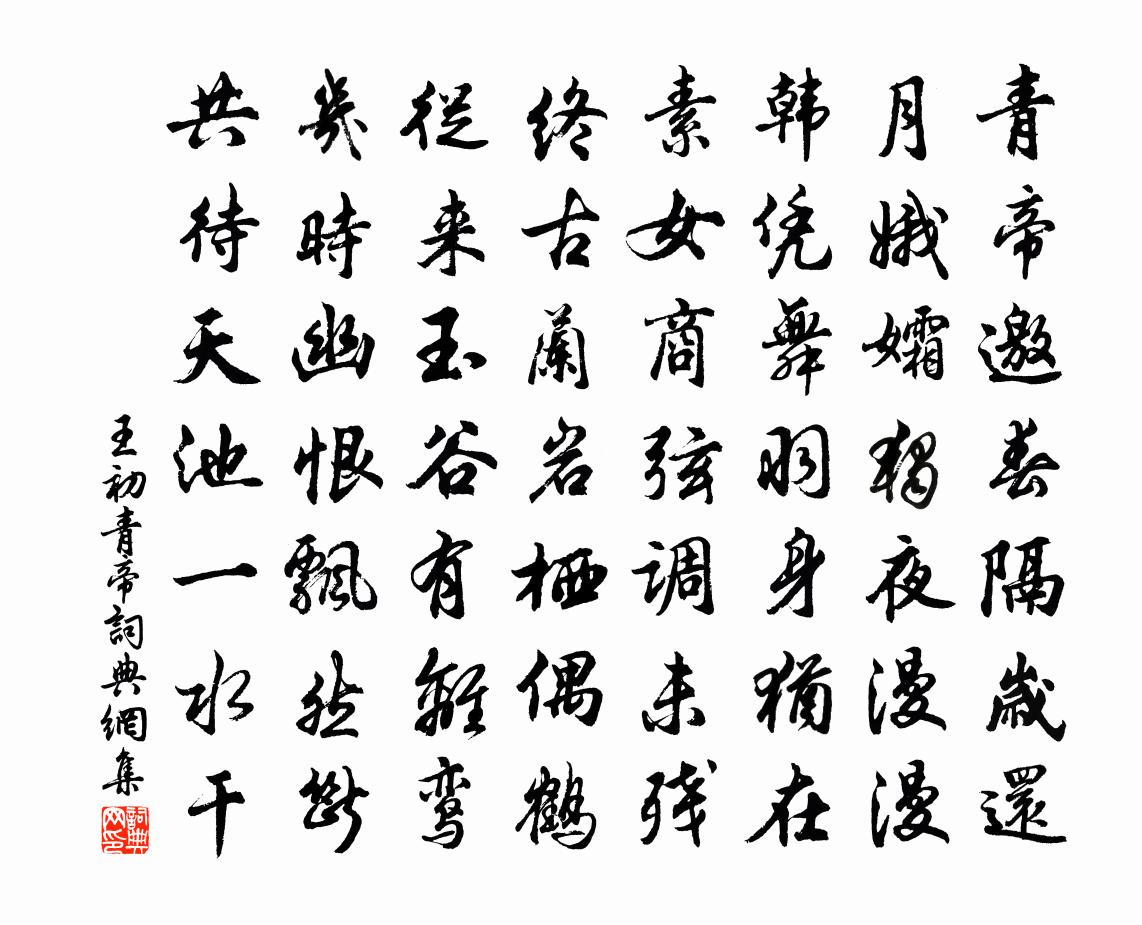 青帝邀春隔歲還
月娥孀獨夜漫漫
韩凭舞羽身猶在
素女商弦调未残
终古蘭岩栖偶鶴
從来玉谷有離鸾
幾時幽恨飄然斷
共待天池一水干
王初青帝詞典網集
詞典网印